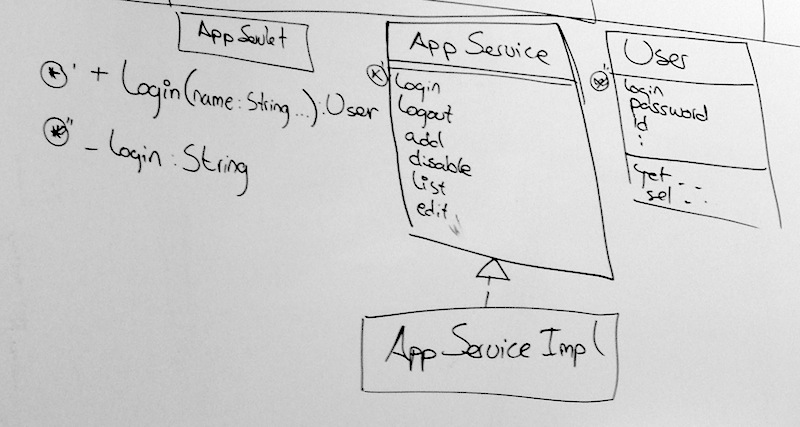 App Servlet
⊛' + Login(name:String...):User
⊛" - Login:String
App Service
⊛'
Login
Logout
add
disable
List
edit
User
⊛"
Login
password
Id
:
get...
set...
App Service Impl